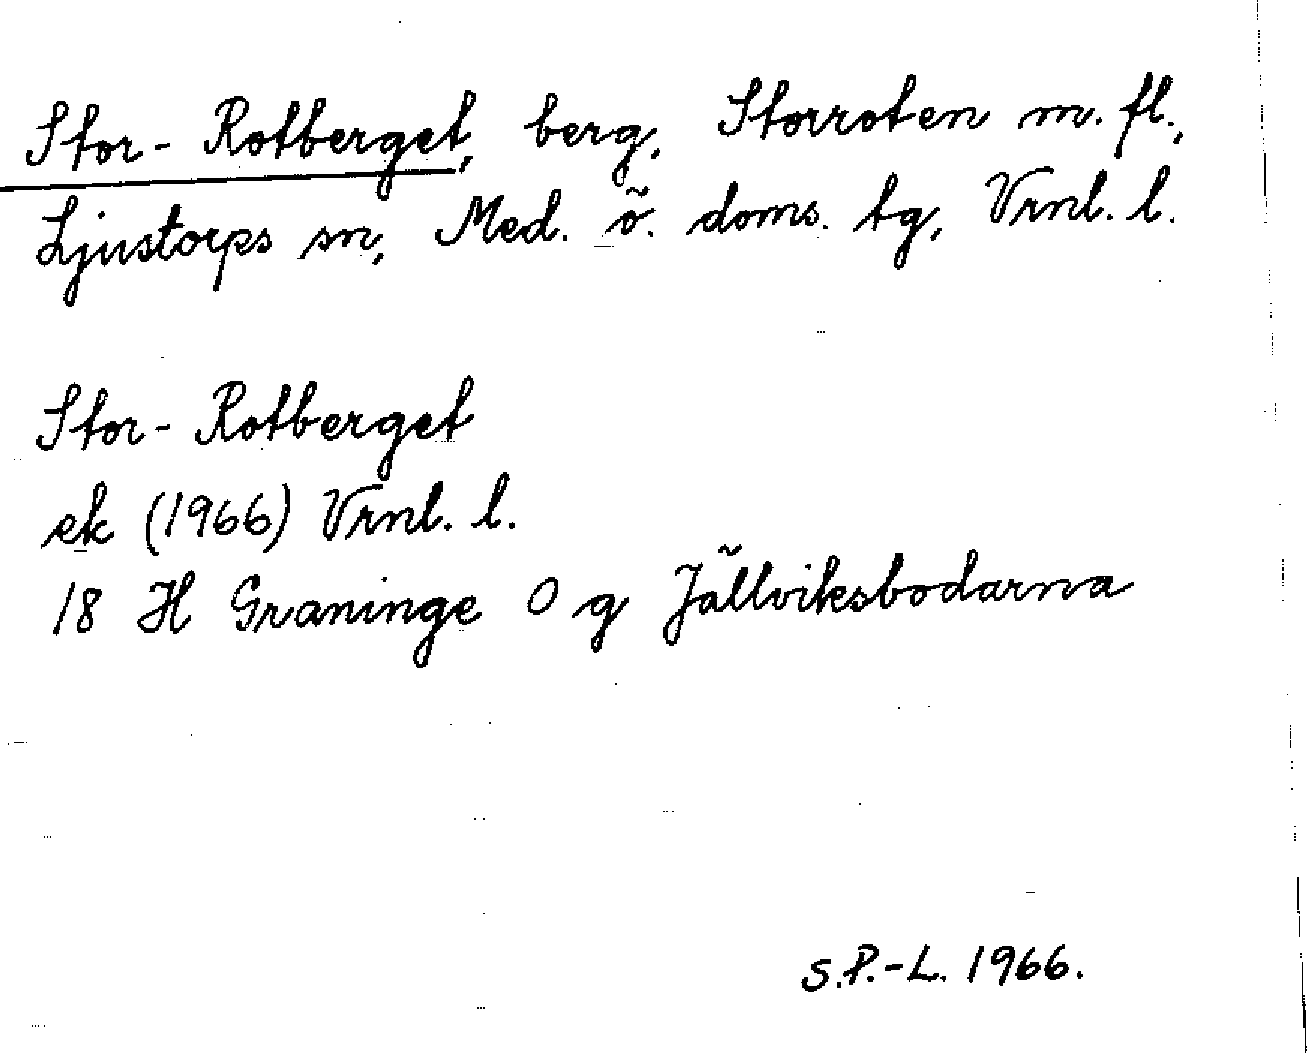 Stor-Rotberget, berg, Storroten m.fl.,
Ljustorps sn, Med. ö. doms. tg, Vrnl. l.
Stor-Rotberget
ek (1966) Vrnl. l.
18 H Graninge O g Jällviksbodarna
S.P.-L. 1966.